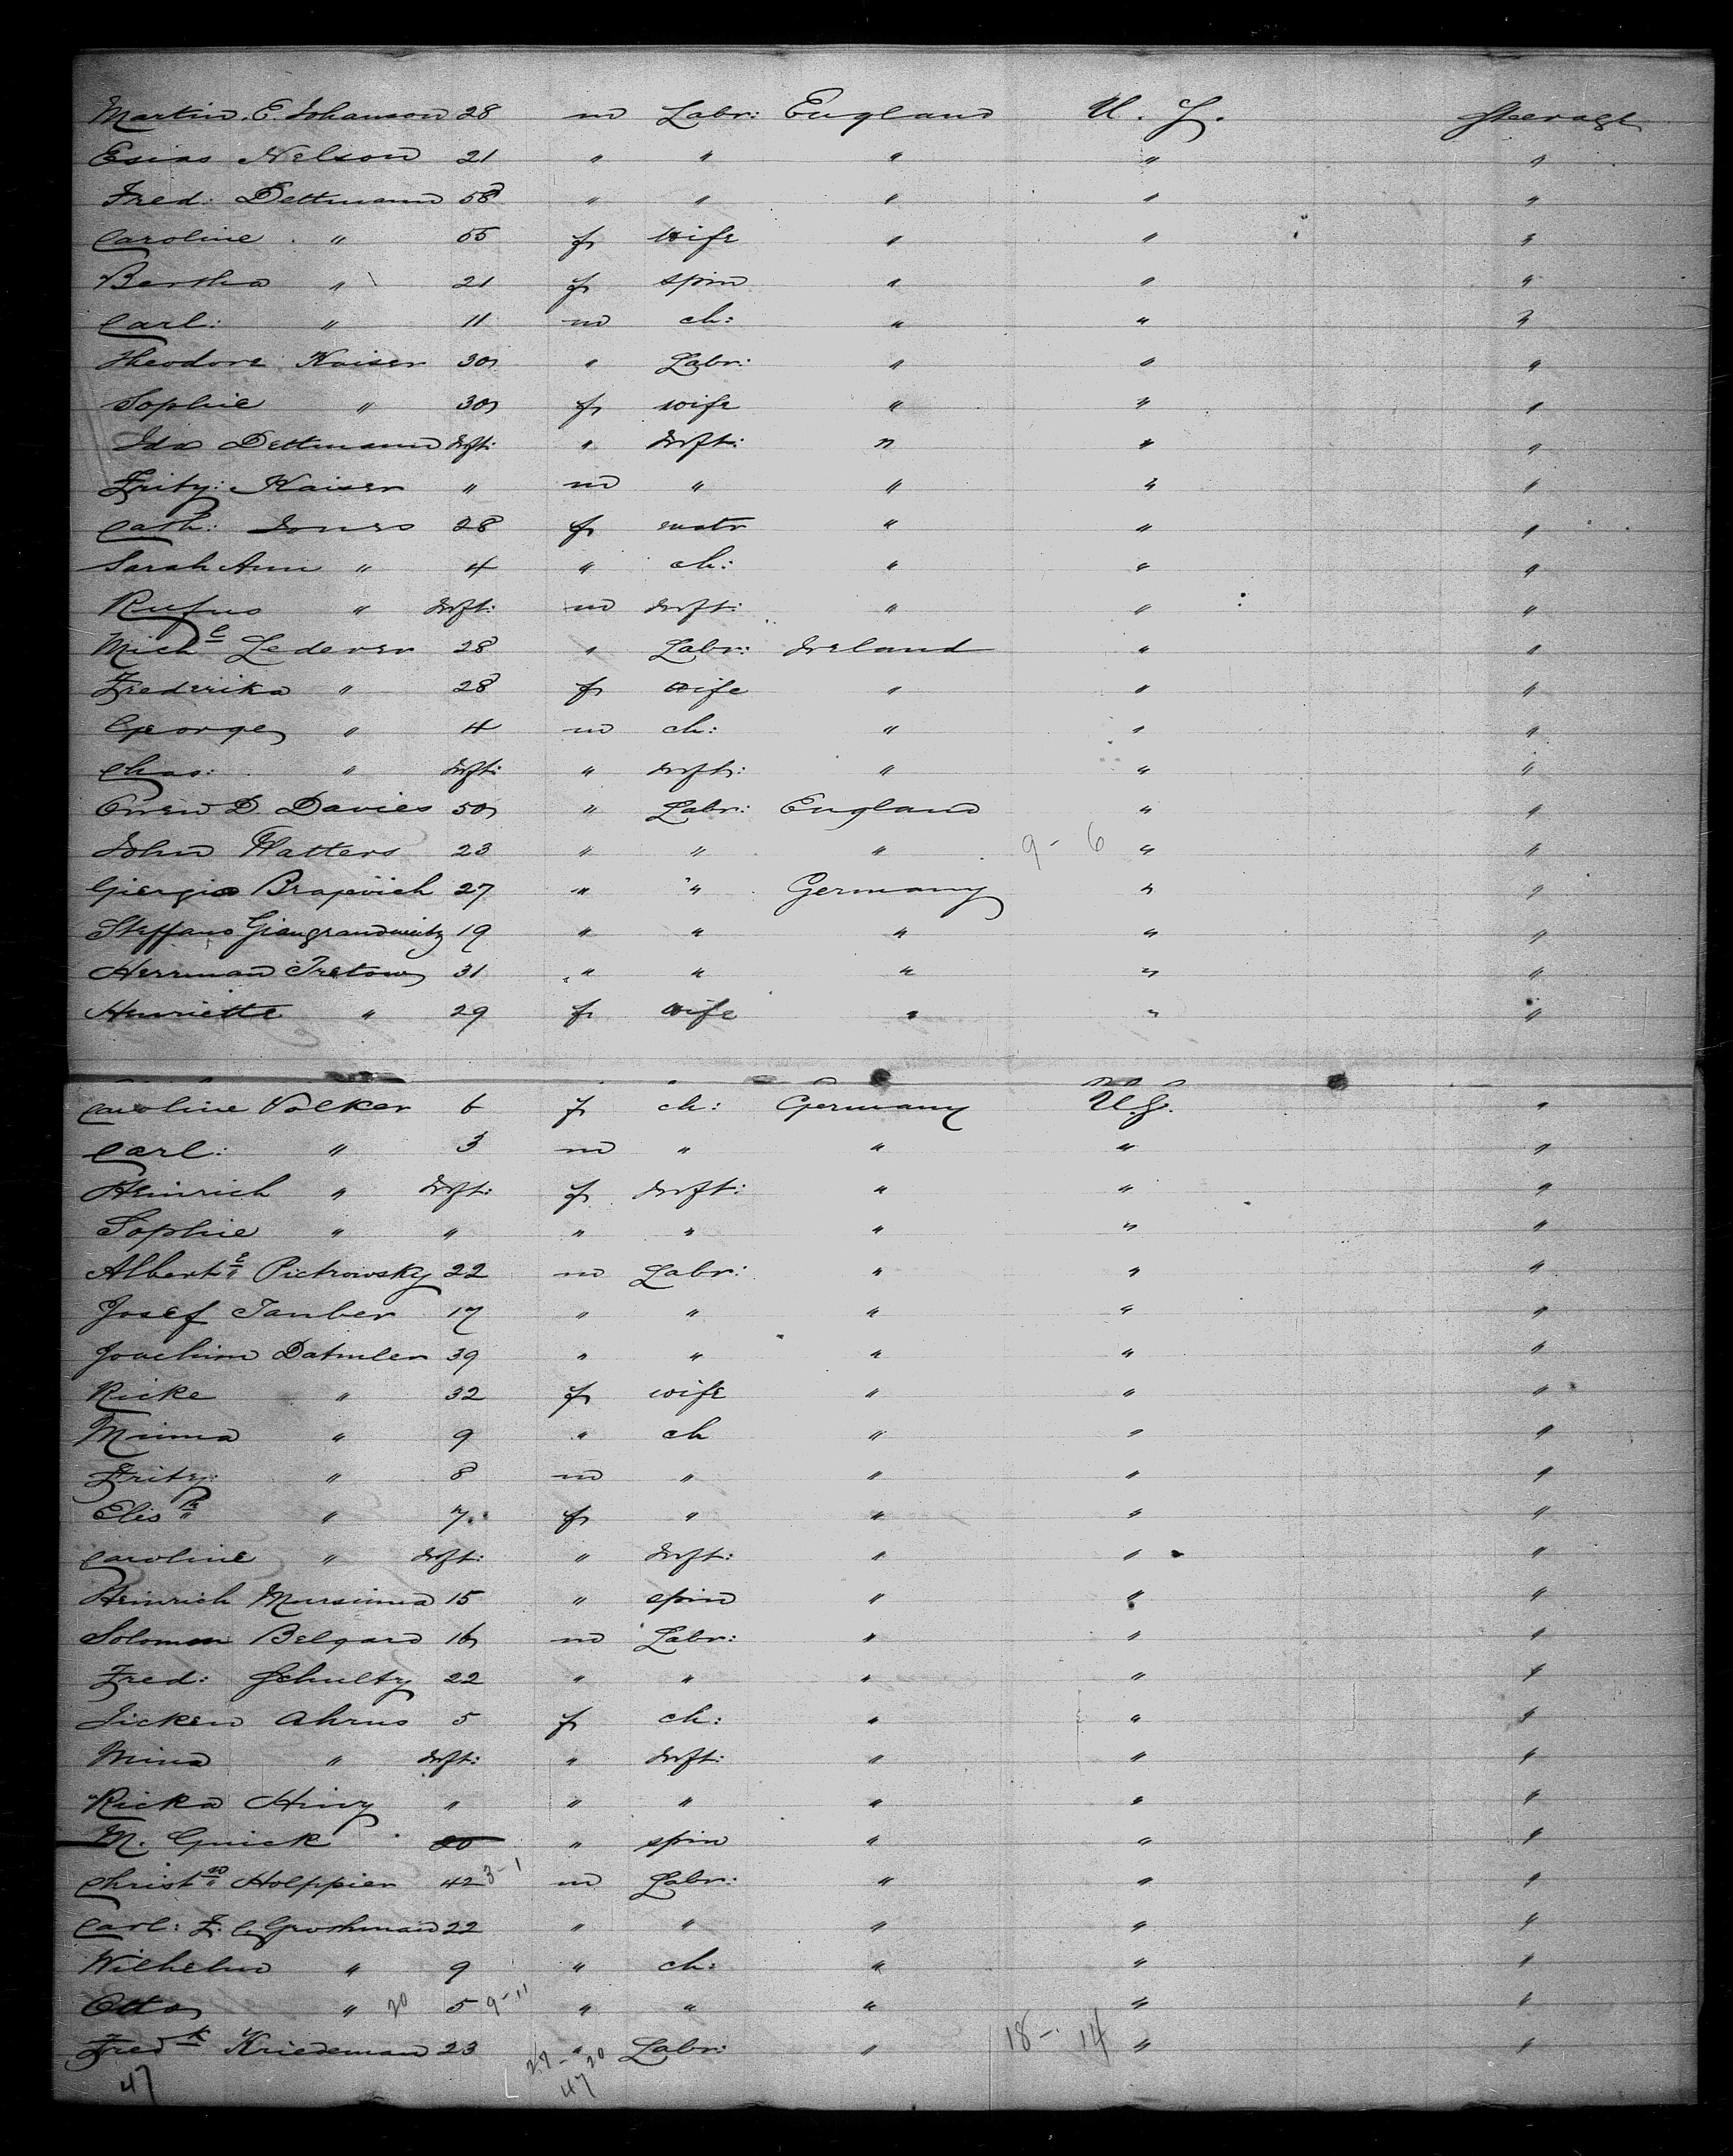 Martin. E. Johanson 28 m Labr: England U. S. Steerage
Esias Nelson 21 " " " " "
Fred: Dettmann 58 " " " " "
Caroline " 55 f wife " " "
Bertha " 21 f spin " " "
Carl: " 11 m ch: " " "
Theodore Kaiser 30 " Labr: " " "
Sophie " 30 f wife " " "
Ida Dettmann Inft: " Inft: " " "
Fritz: Kaiser " m " " " "
Cath: Jones 28 f matr " " "
Sarah Ann " 4 " ch: " " "
Rufus " Inft: m Inft: " " "
Mich l Lederer 28 " Labr: Ireland " "
Frederika " 28 f wife " " "
George " 4 m ch: " " "
Chas: " Inft: " Inft: " " "
Owen D. Davies 50 " Labr: England " "
John Watters 23 " " " 9 - 6 " "
Giergio Brajevich 27 " " Germany " "
Steffano Giangrandwitz 19 " " " " "
Herrman Tretow 31 " " " " "
Henriette " 29 f wife " " "
Caroline Volker 6 f ch: Germany U.S. "
Carl: " 3 m " " " "
Heinrich " Inft: f Inft: " " "
Sophie " " " " " " "
Albert e Pietrowsky 22 m Labr: " " "
Josef Tauber 17 " " " " "
Joachim Datmler 39 " " " " "
Ricke " 32 f wife " " "
Minna " 9 " ch " " "
Fritz: " 8 m " " " "
Elis h " 7 f " " " "
Caroline " Inft: " Inft: " " "
Heinrich Mursinna 15 " spin " " "
Solomon Belgard 16 m Labr: " " "
Fred: Schultz 22 " " " " "
Sicken Ahrns 5 f ch: " " "
Mina " Inft: " Inft: " " "
Ricka Hinz " " " " " "
M. Guick 20 " spin " " "
Christ n Holppier 42 3-1 m Labr: " " "
Carl: F. C. Groshman 22 " " " " "
Wilhelm " 9 " ch: " " "
Otto " 20 5 9-11 " " " " "
Fred k Kriedeman 23 " Labr: " 18 - 14 " "
47 27 - 20
47